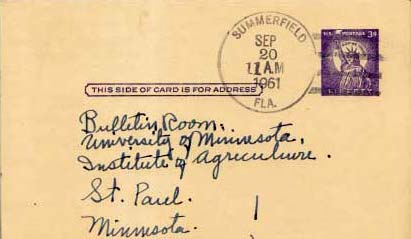 SUMMERFIELD
SEP
20
11 AM
1961
FLA.
U.S. POSTAGE 3¢
LIBERTY
THIS SIDE OF CARD IS FOR ADDRESS
Bulletin Room.
University of Minnesota,
Institute of Agriculture.
St. Paul.
Minnesota.